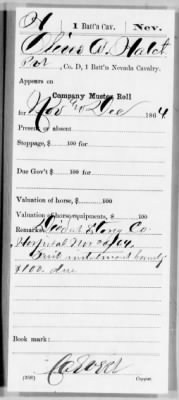 H 1 Batt'n Cav. Nev.
Oliver D. Hatch
Pvt, Co. D, 1 Batt'n Nevada Cavalry.
Appears on
Company Muster Roll
for Nov & Dec, 1864
Present or absent
Stoppage, $ 100 for
Due Gov't $ 100 for
Valuation of horse, $ 100
Valuation of horse equipments, $ 100
Remarks: Died at Story Co
Hospital Nov 20/64.
First installment bounty
$100. due
Book mark:
(358) Copyist.